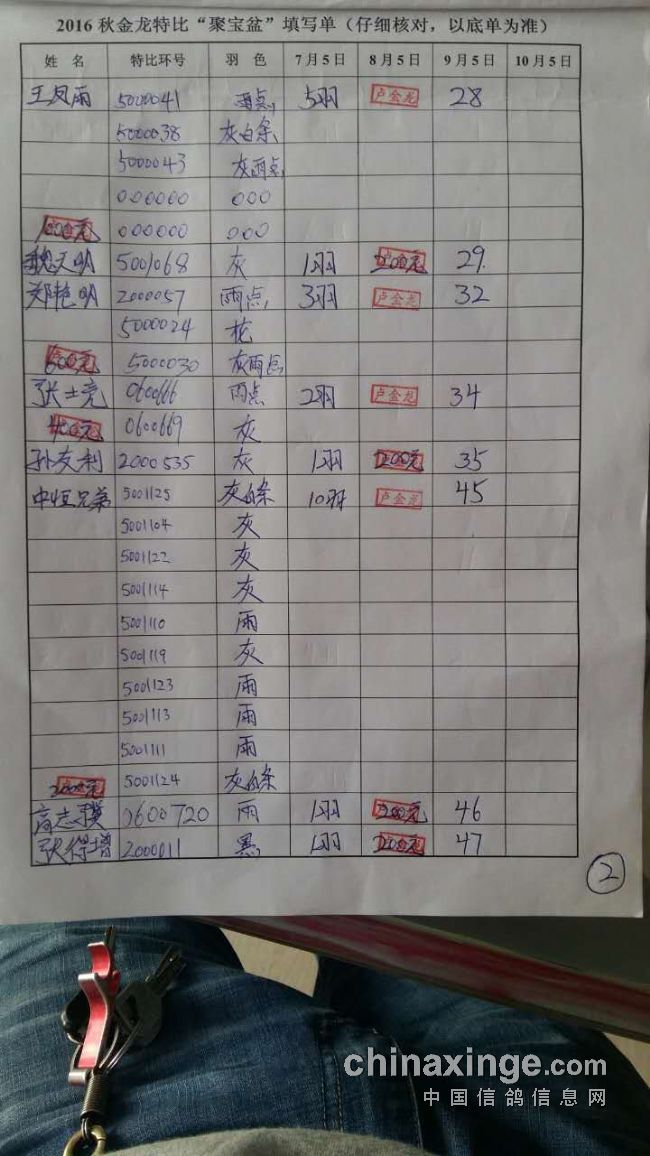 2016秋金龙特比“聚宝盆”填写单（仔细核对，以底单为准）
姓 名 特比环号 羽 色 7月5日 8月5日 9月5日 10月5日
王凤雨 5000041 雨点 5羽 卢金龙 28
5000038 灰白条
5000043 灰雨点
000000 000
1000元 000000 000
魏天明 5001068 灰 1羽 200元 29
郑艳明 2000057 雨点 3羽 卢金龙 32
5000024 花
600元 5000030 灰雨点
张士亮 0600666 雨点 2羽 卢金龙 34
400元 0600669 灰
孙友利 2000535 灰 1羽 200元 35
中恒兄弟 5001125 灰白条 10羽 卢金龙 45
5001104 灰
5001122 灰
5001114 灰
5001110 雨
5001119 灰
5001123 雨
5001113 雨
5001111 雨
2000元 5001124 灰白条
高志 0600720 雨 1羽 200元 46
张得增 2000011 黑 1羽 200元 47
2
chinaxinge.com
中国信鸽信息网